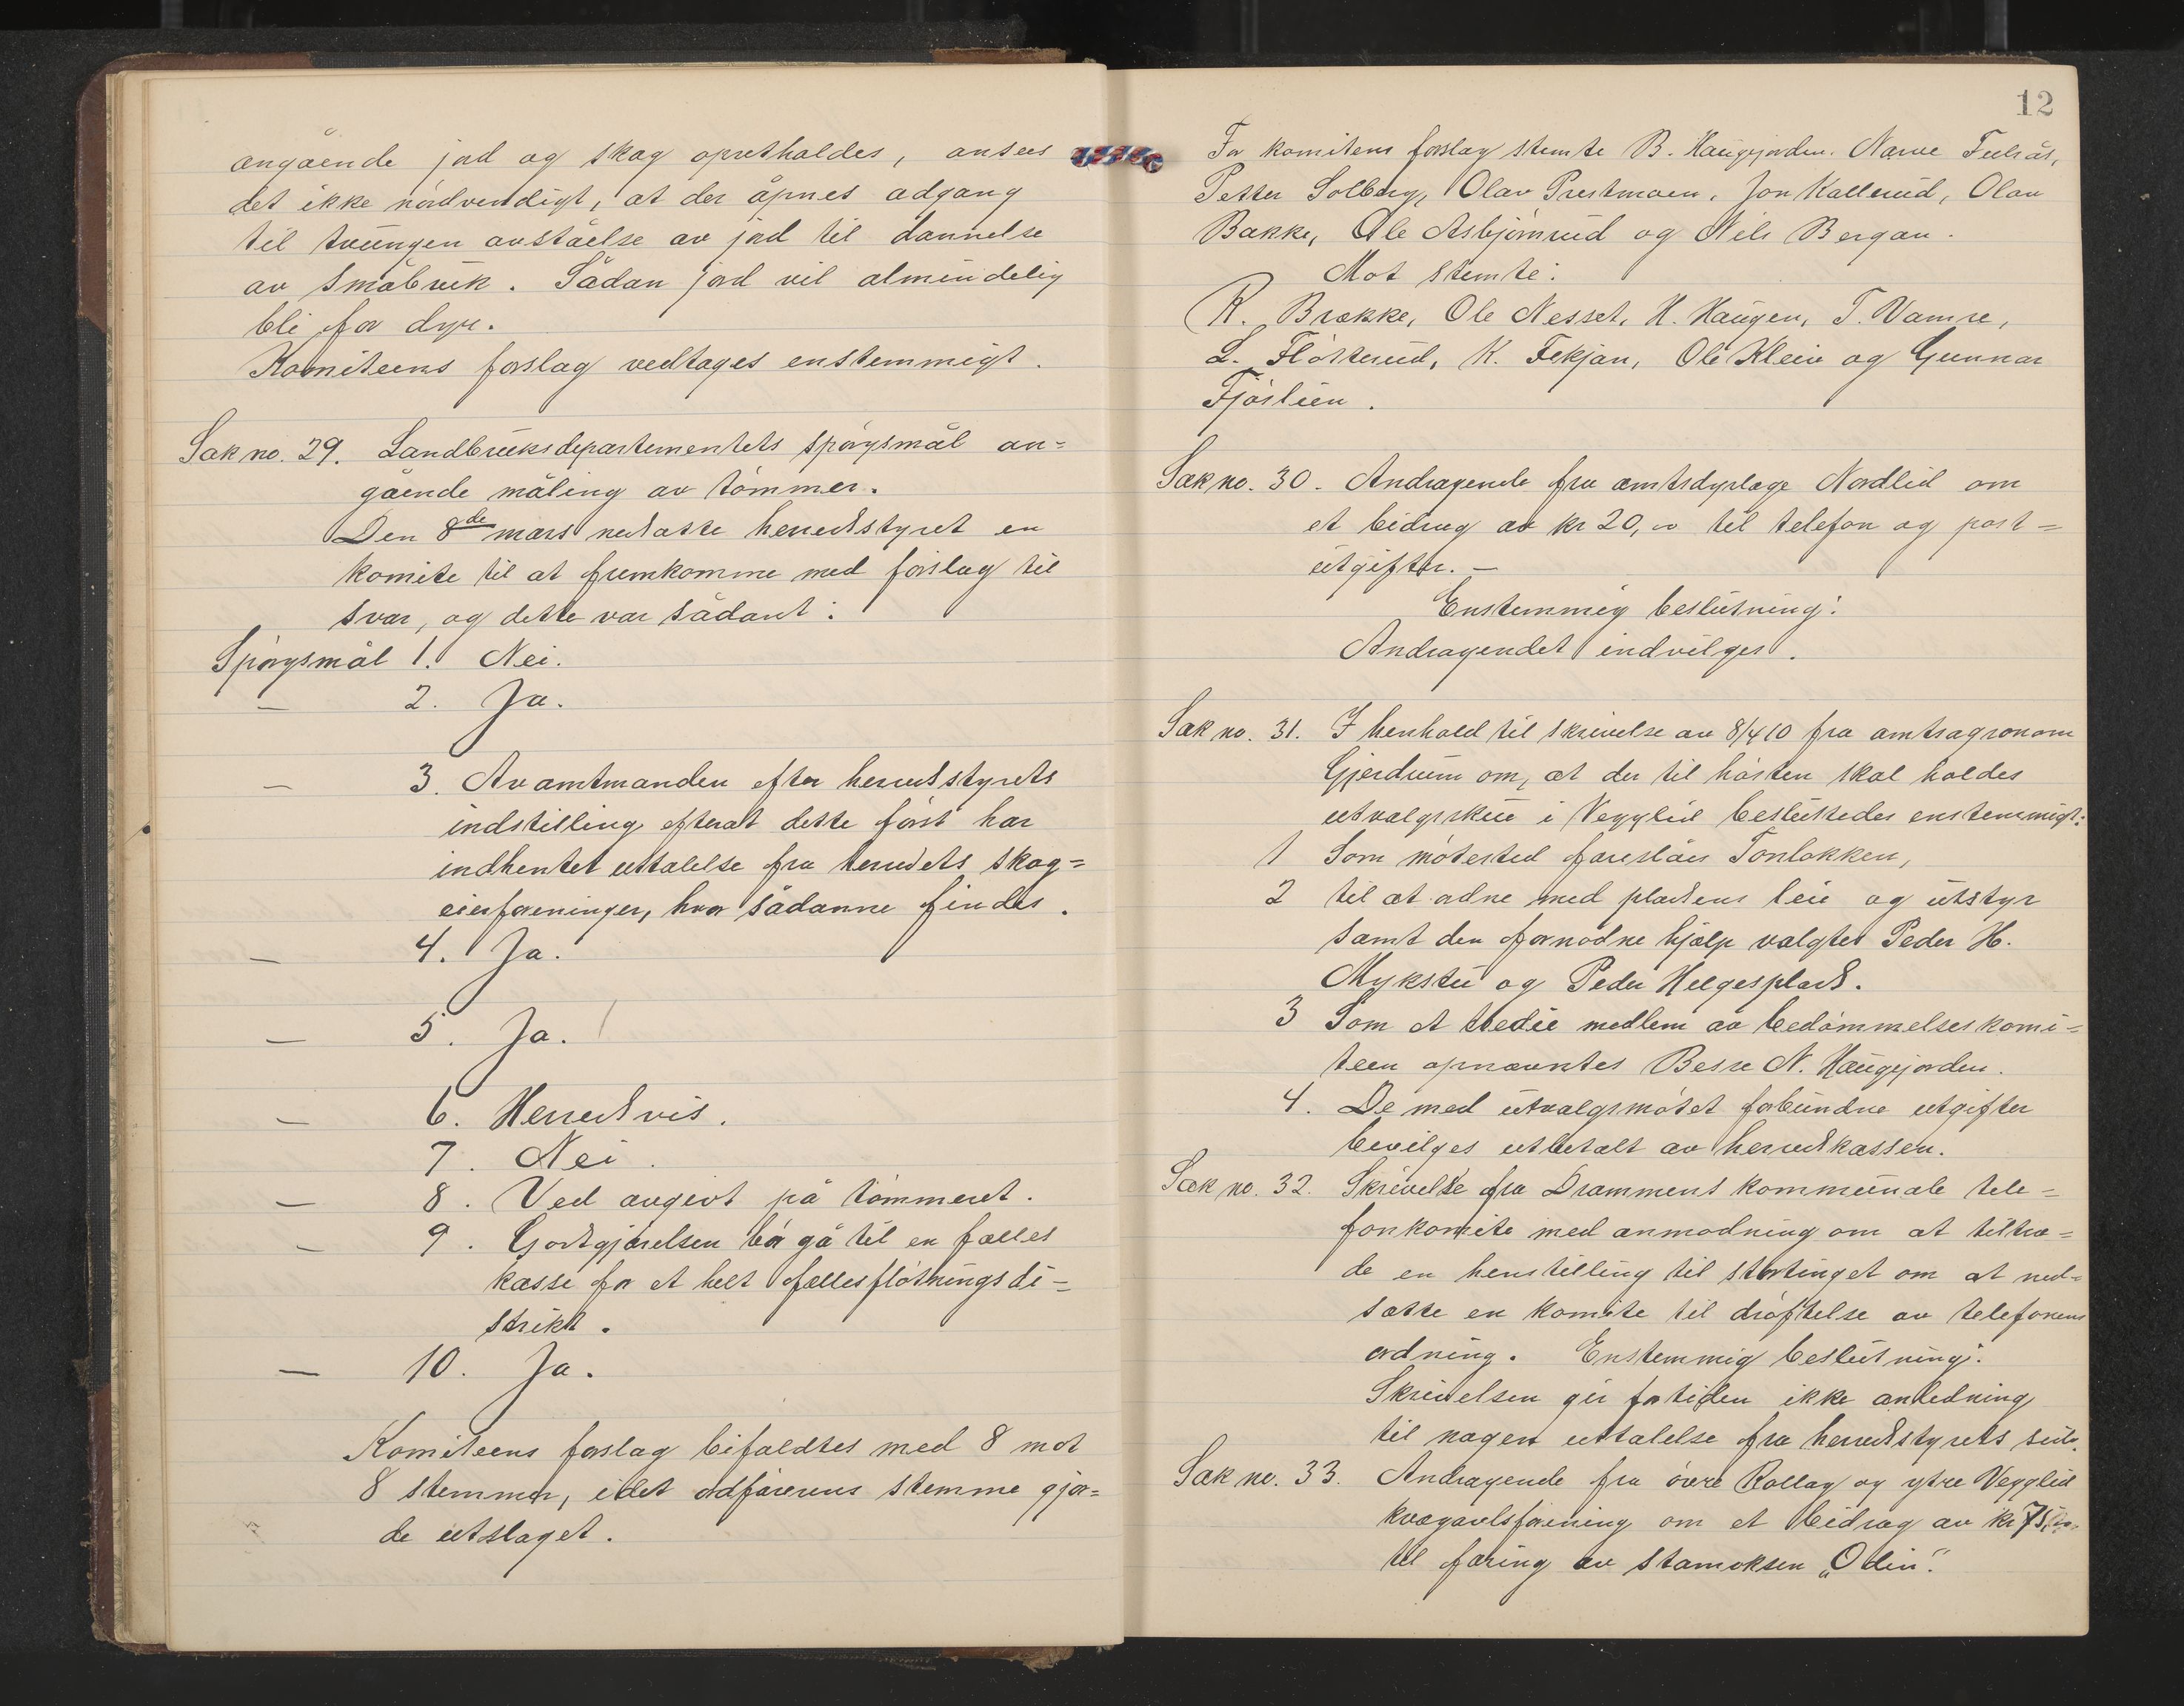 angående jord og skog opretholdes, ansees
det ikke nödvendigt, at der åpnes adgang
til tvungen avståelse av jord til dannelse
av småbruk. Sådan jord vil almindelig
bli for dyr.
Komiteens forslag vedtages enstemmigt.
Sak no. 29. Landbruksdepartementets spörgsmål an=
gående måling av tömmer.
Den 8de mars nedsatte herredstyret en
komite til at fremkomme med forslag til
svar, og dette var sådant:
Spörgsmål 1. Nei.
— 2. Ja.
— 3. Av amtmanden efter herredsstyrets
indstilling efterat dette först har
indhentet uttalelse fra herredets skog=
eierforeninger, hvor sådanne findes.
— 4. Ja.
— 5. Ja.
— 6. Herredsvis.
7. Nei.
— 8. Ved avgivt på tömmeret.
— 9. Godtgjörelsen bör gå til en fælles
kasse for et helt fællesflötningsdi=
strikt.
— 10. Ja.
Komiteens forslag bifaldtes med 8 mot
8 stemmer, idet ordförerens stemme gjor=
de utslaget.
12
For komitens forslag stemte B. Haugjorden. Narve
Petter Solberg, Olav Prestmoen, Jon Kallerud, Olav
Bakke, Ole Asbjörnrud og Nils Bergan.
Mot stemte:
K. Brække, Ole Nesset, H. Haugen, T. Vamre,
L. Flösterud, K. Fekjan, Ole Kleiv og Gunnar
Fjöslien.
Sak no. 30. Andragende fra amtsdyrlæge Nordlid om
et bidrag av kr 20,00 til telefon og post=
utgifter. —
Enstemmig beslutning:
Andragendet indvilges.
Sak no. 31. I henhold til skrivelse av 8/4 10 fra amtsagronom
Gjerdrum om, at der til hösten skal holdes
utvalgsskue i Vegglid besluttedes enstemmigt:
1 Som mötested foreslåes Tonlokken,
2 til at ordne med pladsens leie og utstyr
samt den fornödne hjælp valgtes Peder H.
Mykstu og Peder Helgesplads.
3 Som et tredie medlem av bedömmelseskomi=
teen opnævntes Besse N. Haugjorden.
4. De med utvalgsmötet forbundne utgifter
bevilges utbetalt av herredskassen.
Sak no. 32. Skrivelse fra Drammens kommunale tele=
fonkomite med anmodning om at tiltræ=
de en henstilling til stortinget om at ned=
sætte en komite til dröftelse av telefonens
ordning. Enstemmig beslutning:
Skrivelsen gir fortiden ikke anledning
til nogen uttalelse fra herredstyrets side.
Sak no. 33. Andragende fra övre Rollag og ytre Vegglid
kvægavlsforening om et bidrag av kr 75,00
til foring av stamoksen „Odin".